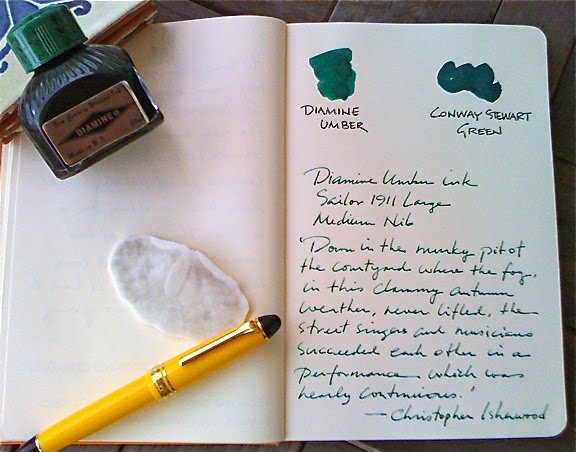 DIAMINE
Made in U.K.
DIAMINE
UMBER
CONWAY STEWART
GREEN
Diamine Umber ink
Sailor 1911 Large
Medium Nib
"Down in the murky pit of
the courtyard where the fog,
in this clammy autumn
weather, never lifted, the
street singers and musicians
succeeded each other in a
performance which was
nearly continuous."
— Christopher Isherwood